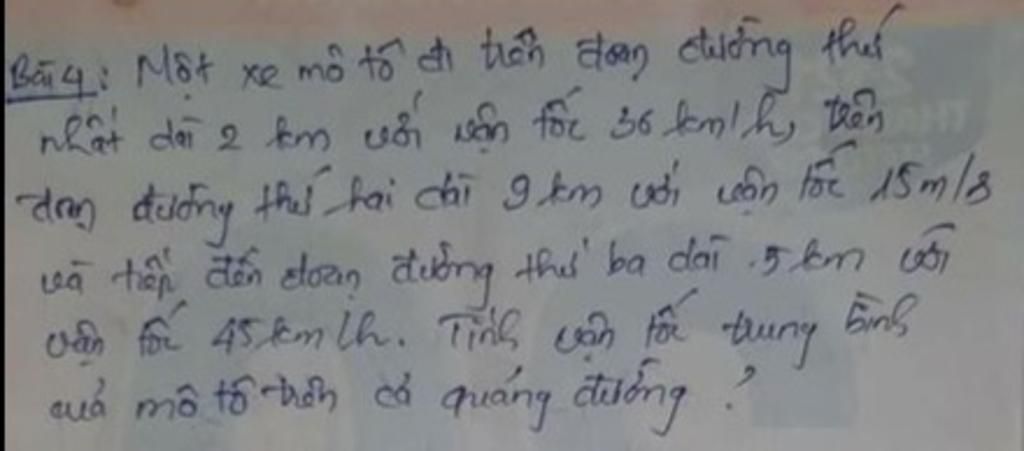 Bài 4: Một xe mô tô đi trên đoạn đường thứ
nhất dài 2 km với vận tốc 36 km/h, trên
đoạn đường thứ hai dài 9 km với vận tốc 15m/s
và tiếp đến đoạn đường thứ ba dài 5 km với
vận tốc 45 km/h. Tính vận tốc trung bình
của mô tô trên cả quãng đường?